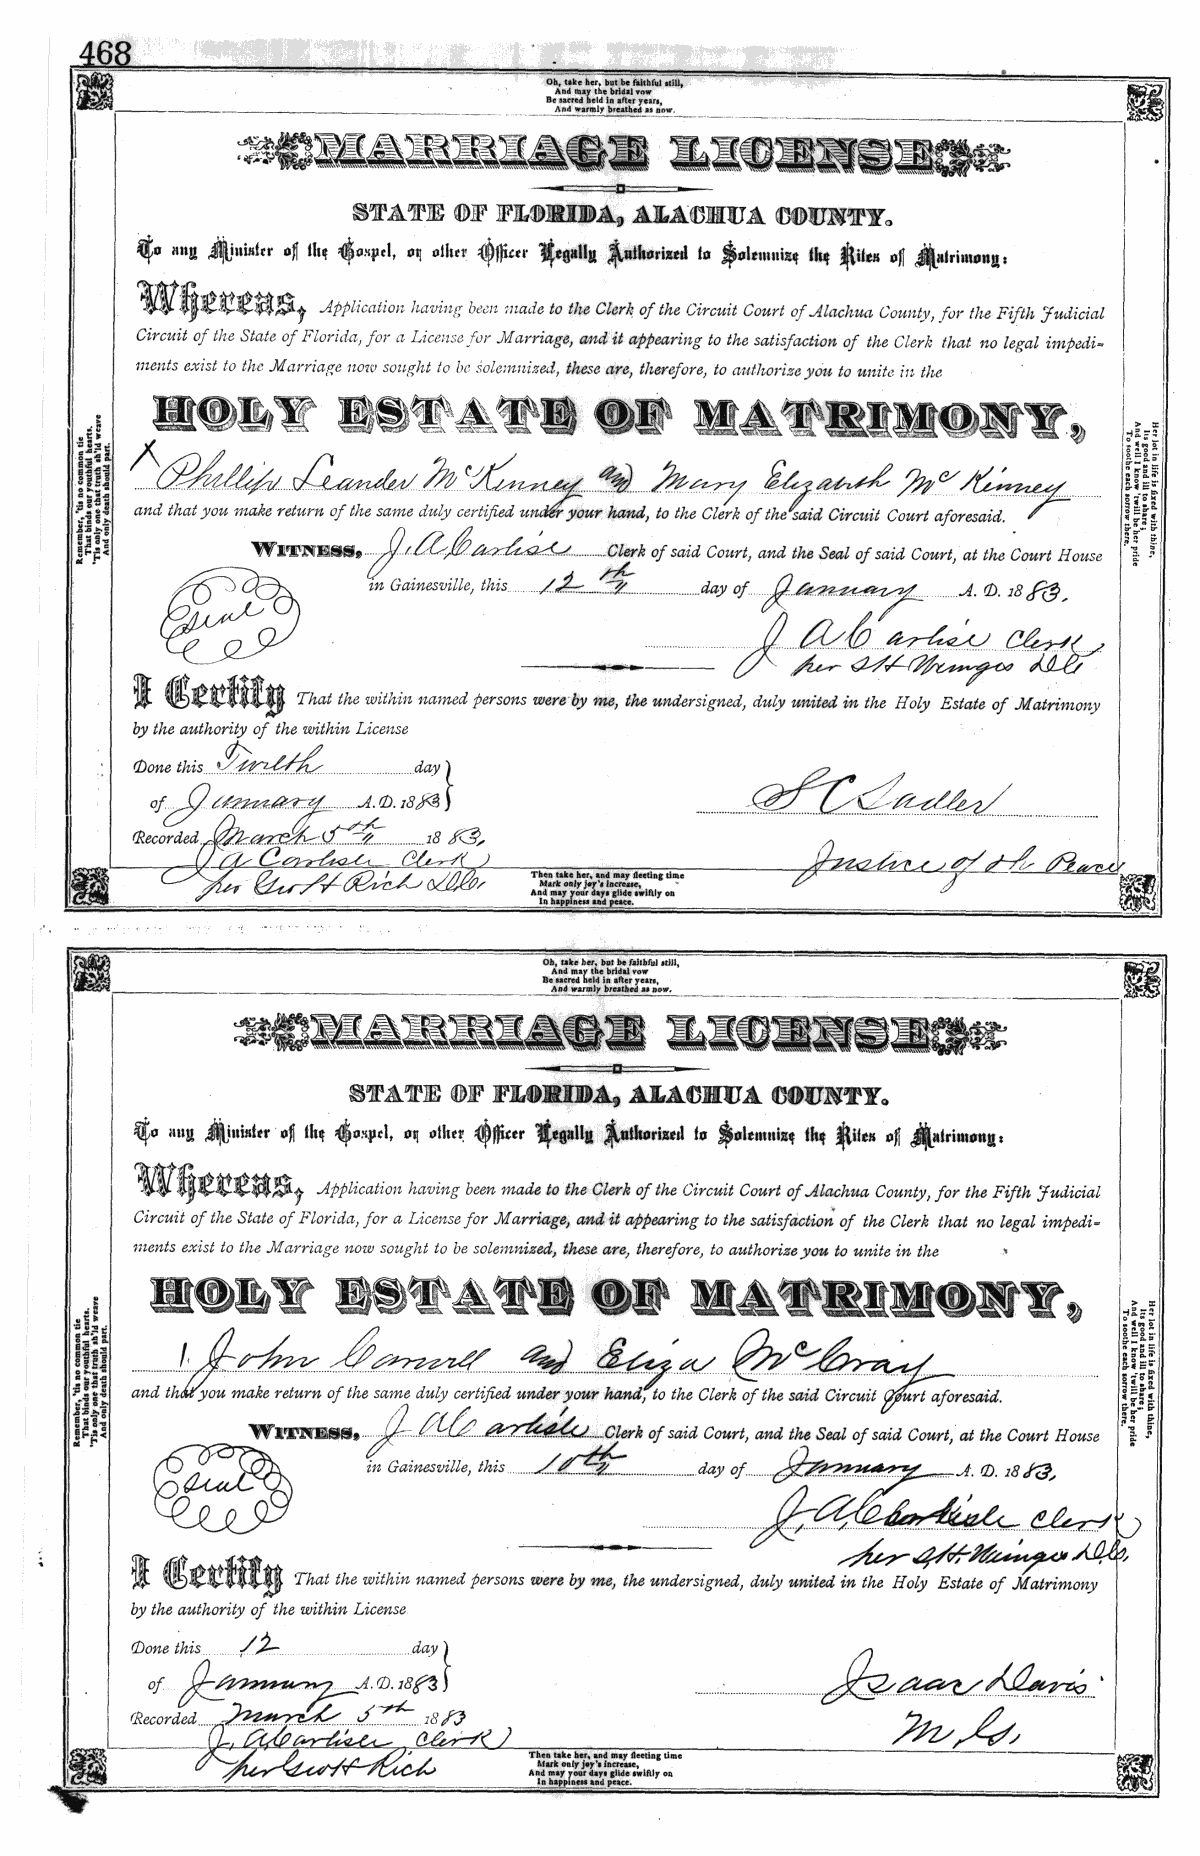 468
Oh, take her, but be faithful still,
And may the bridal vow
Be sacred held in after years,
And warmly breathed as now.
MARRIAGE LICENSE
STATE OF FLORIDA, ALACHUA COUNTY.
To any Minister of the Gospel, or other Officer Legally Authorized to Solemnize the Rites of Matrimony:
Whereas, Application having been made to the Clerk of the Circuit Court of Alachua County, for the Fifth Judicial
Circuit of the State of Florida, for a License for Marriage, and it appearing to the satisfaction of the Clerk that no legal impedi-
ments exist to the Marriage now sought to be solemnized, these are, therefore, to authorize you to unite in the
HOLY ESTATE OF MATRIMONY,
X
Phillip Leander McKinney and Mary Elizabeth McKinney
and that you make return of the same duly certified under your hand, to the Clerk of the said Circuit Court aforesaid.
WITNESS, J. A Carlisle Clerk of said Court, and the Seal of said Court, at the Court House
in Gainesville, this 12th day of January A. D. 1883.
Seal
J A Carlisle Clerk
per S H D.C.
I Certify That the within named persons were by me, the undersigned, duly united in the Holy Estate of Matrimony
by the authority of the within License
Done this Twelth day
of January A. D. 1883
S C Sadler
Recorded March 5th 1883.
J A Carlisle Clerk
Justice of th Peace
per Geo H Rich D.C.
Then take her, and may fleeting time
Mark only joy's increase,
And may your days glide swiftly on
In happiness and peace.
Remember, 'tis no common tie
That binds our youthful hearts,
'Tis only one that truth sh'ld weave
And only death should part.
Her lot in life is fixed with thine,
Its good and ill to share;
And well I know 'twill be her pride
To soothe each sorrow there.
Oh, take her, but be faithful still,
And may the bridal vow
Be sacred held in after years,
And warmly breathed as now.
MARRIAGE LICENSE
STATE OF FLORIDA, ALACHUA COUNTY.
To any Minister of the Gospel, or other Officer Legally Authorized to Solemnize the Rites of Matrimony:
Whereas, Application having been made to the Clerk of the Circuit Court of Alachua County, for the Fifth Judicial
Circuit of the State of Florida, for a License for Marriage, and it appearing to the satisfaction of the Clerk that no legal impedi-
ments exist to the Marriage now sought to be solemnized, these are, therefore, to authorize you to unite in the
HOLY ESTATE OF MATRIMONY,
John and Eliza McCray
and that you make return of the same duly certified under your hand, to the Clerk of the said Circuit Court aforesaid.
WITNESS, J A Carlisle Clerk of said Court, and the Seal of said Court, at the Court House
in Gainesville, this 10th day of January A. D. 1883.
Seal
J. A. Carlisle Clerk
per S. H. D.C.
I Certify That the within named persons were by me, the undersigned, duly united in the Holy Estate of Matrimony
by the authority of the within License
Done this 12 day
of January A. D. 1883
Isaac Davis
Recorded March 5th 1883
M. G.
J. A Carlisle Clerk
per Geo H Rich
Then take her, and may fleeting time
Mark only joy's increase,
And may your days glide swiftly on
In happiness and peace.
Remember, 'tis no common tie
That binds our youthful hearts,
'Tis only one that truth sh'ld weave
And only death should part.
Her lot in life is fixed with thine,
Its good and ill to share;
And well I know 'twill be her pride
To soothe each sorrow there.